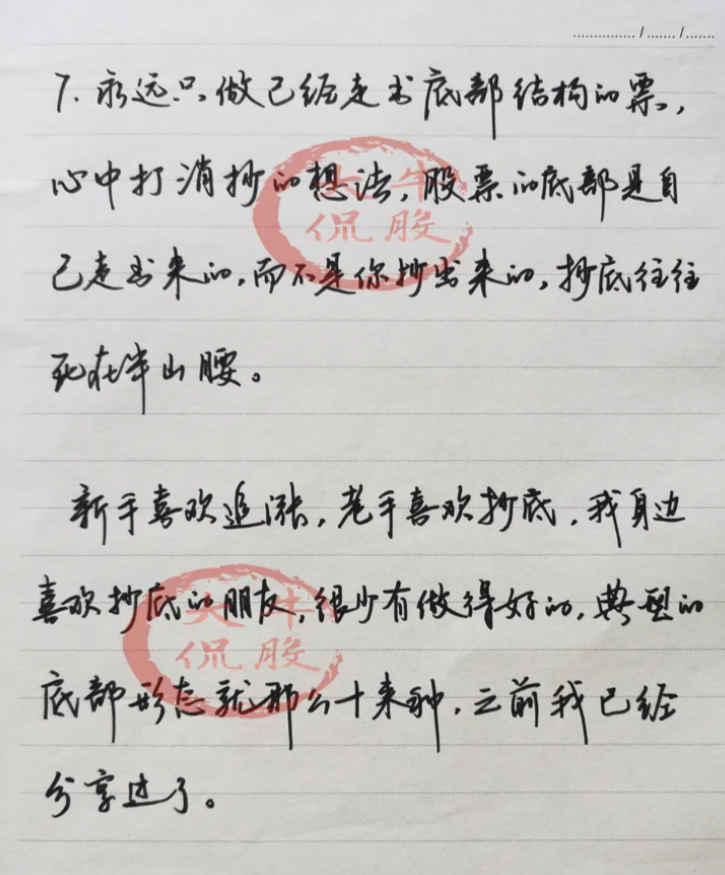 7. 永远只做已经走出底部结构的票,
心中打消抄的想法, 股票的底部是自
己走出来的, 而不是你抄出来的, 抄底往往
死在半山腰。
新手喜欢追涨, 老手喜欢抄底, 我身边
喜欢抄底的朋友, 很少有做得好的, 典型的
底部形态就那么十来种, 之前我已经
分享过了。
大牛
侃股
大牛
侃股